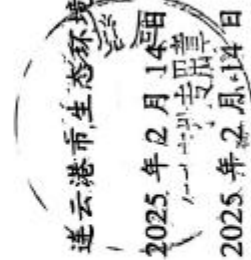 连云港市生态环境局
2025年2月14日
专用章
2025年2月14日